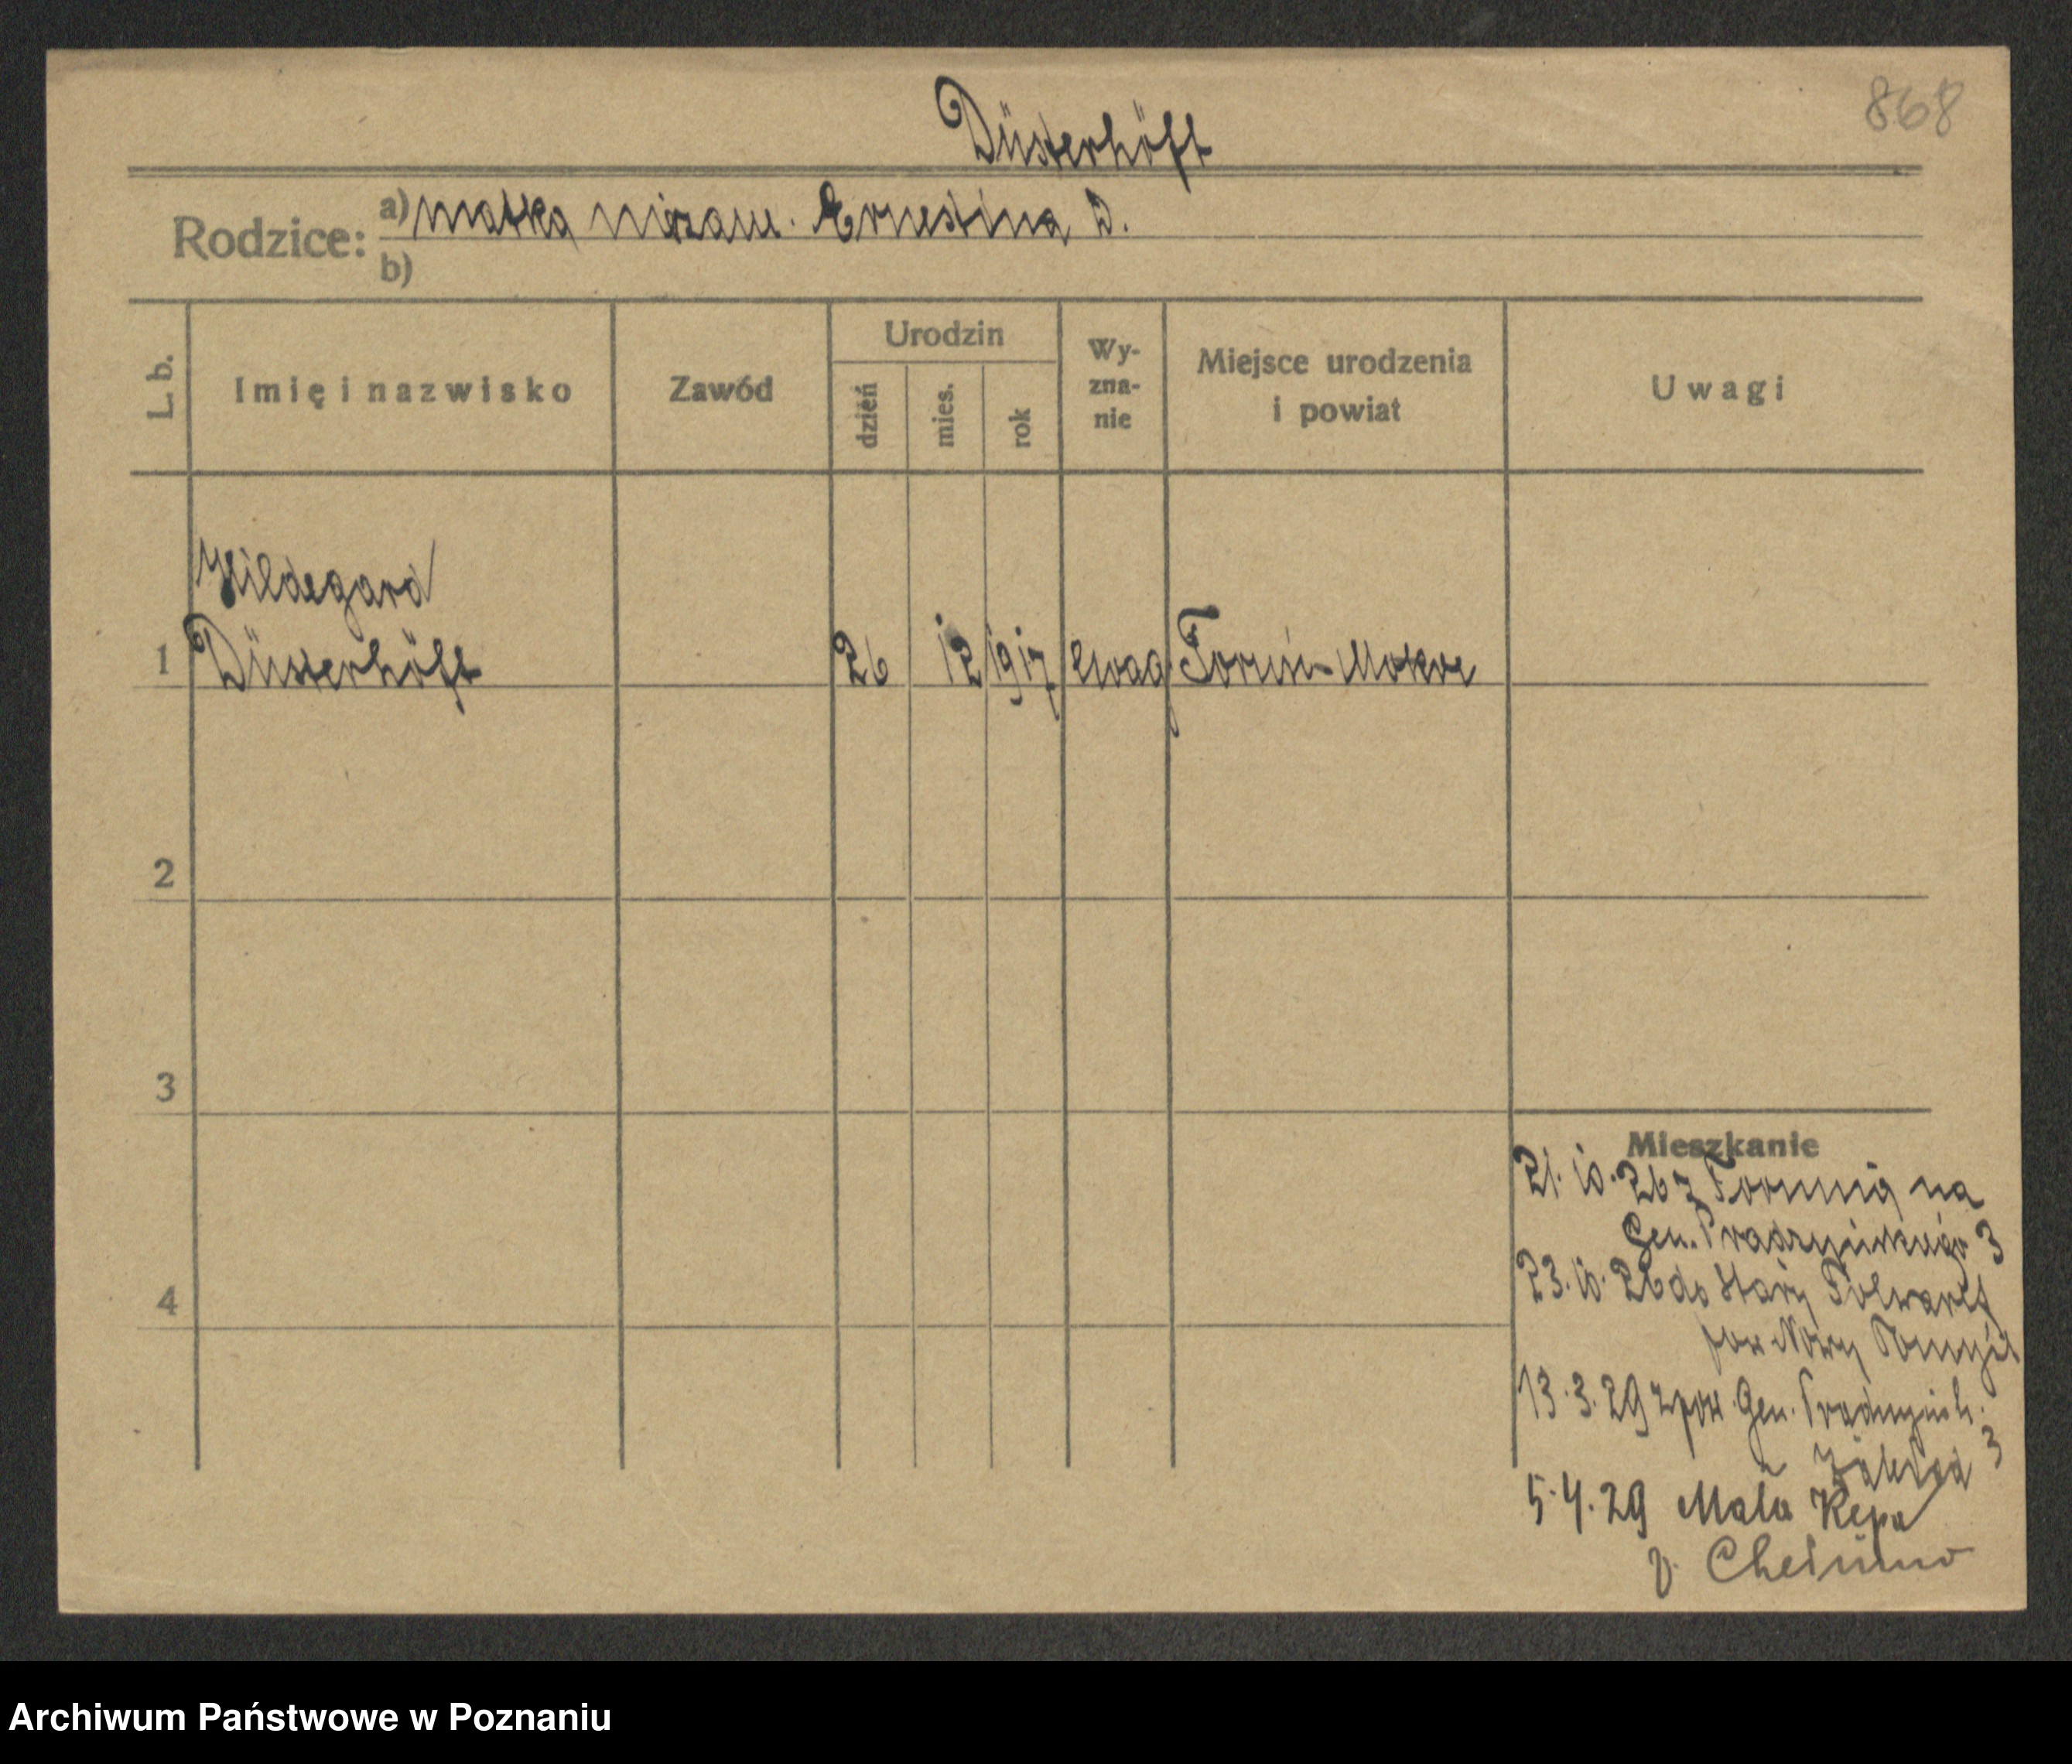 868
Düsterhöft
Rodzice:
a) matka niezam. Ernestina D.
b)
L. b.
Imię i nazwisko
Zawód
Urodzin
dzień
mies.
rok
Wy-
zna-
nie
Miejsce urodzenia
i powiat
Uwagi
Hildegard
1 Düsterhöft 26 12 1917 ewag. Toruń-Mokre
2
3
4
Mieszkanie
21.10.26 z Torunia na
Gen. Prądzyńskiego 3
23.10.26 do Stary Folwark
pow Nowy Tomyśl
13.3.29 zpow. Gen. Prądzyńsk.
3
5.4.29 Mała Kępa
p. Chełmno
Archiwum Państwowe w Poznaniu